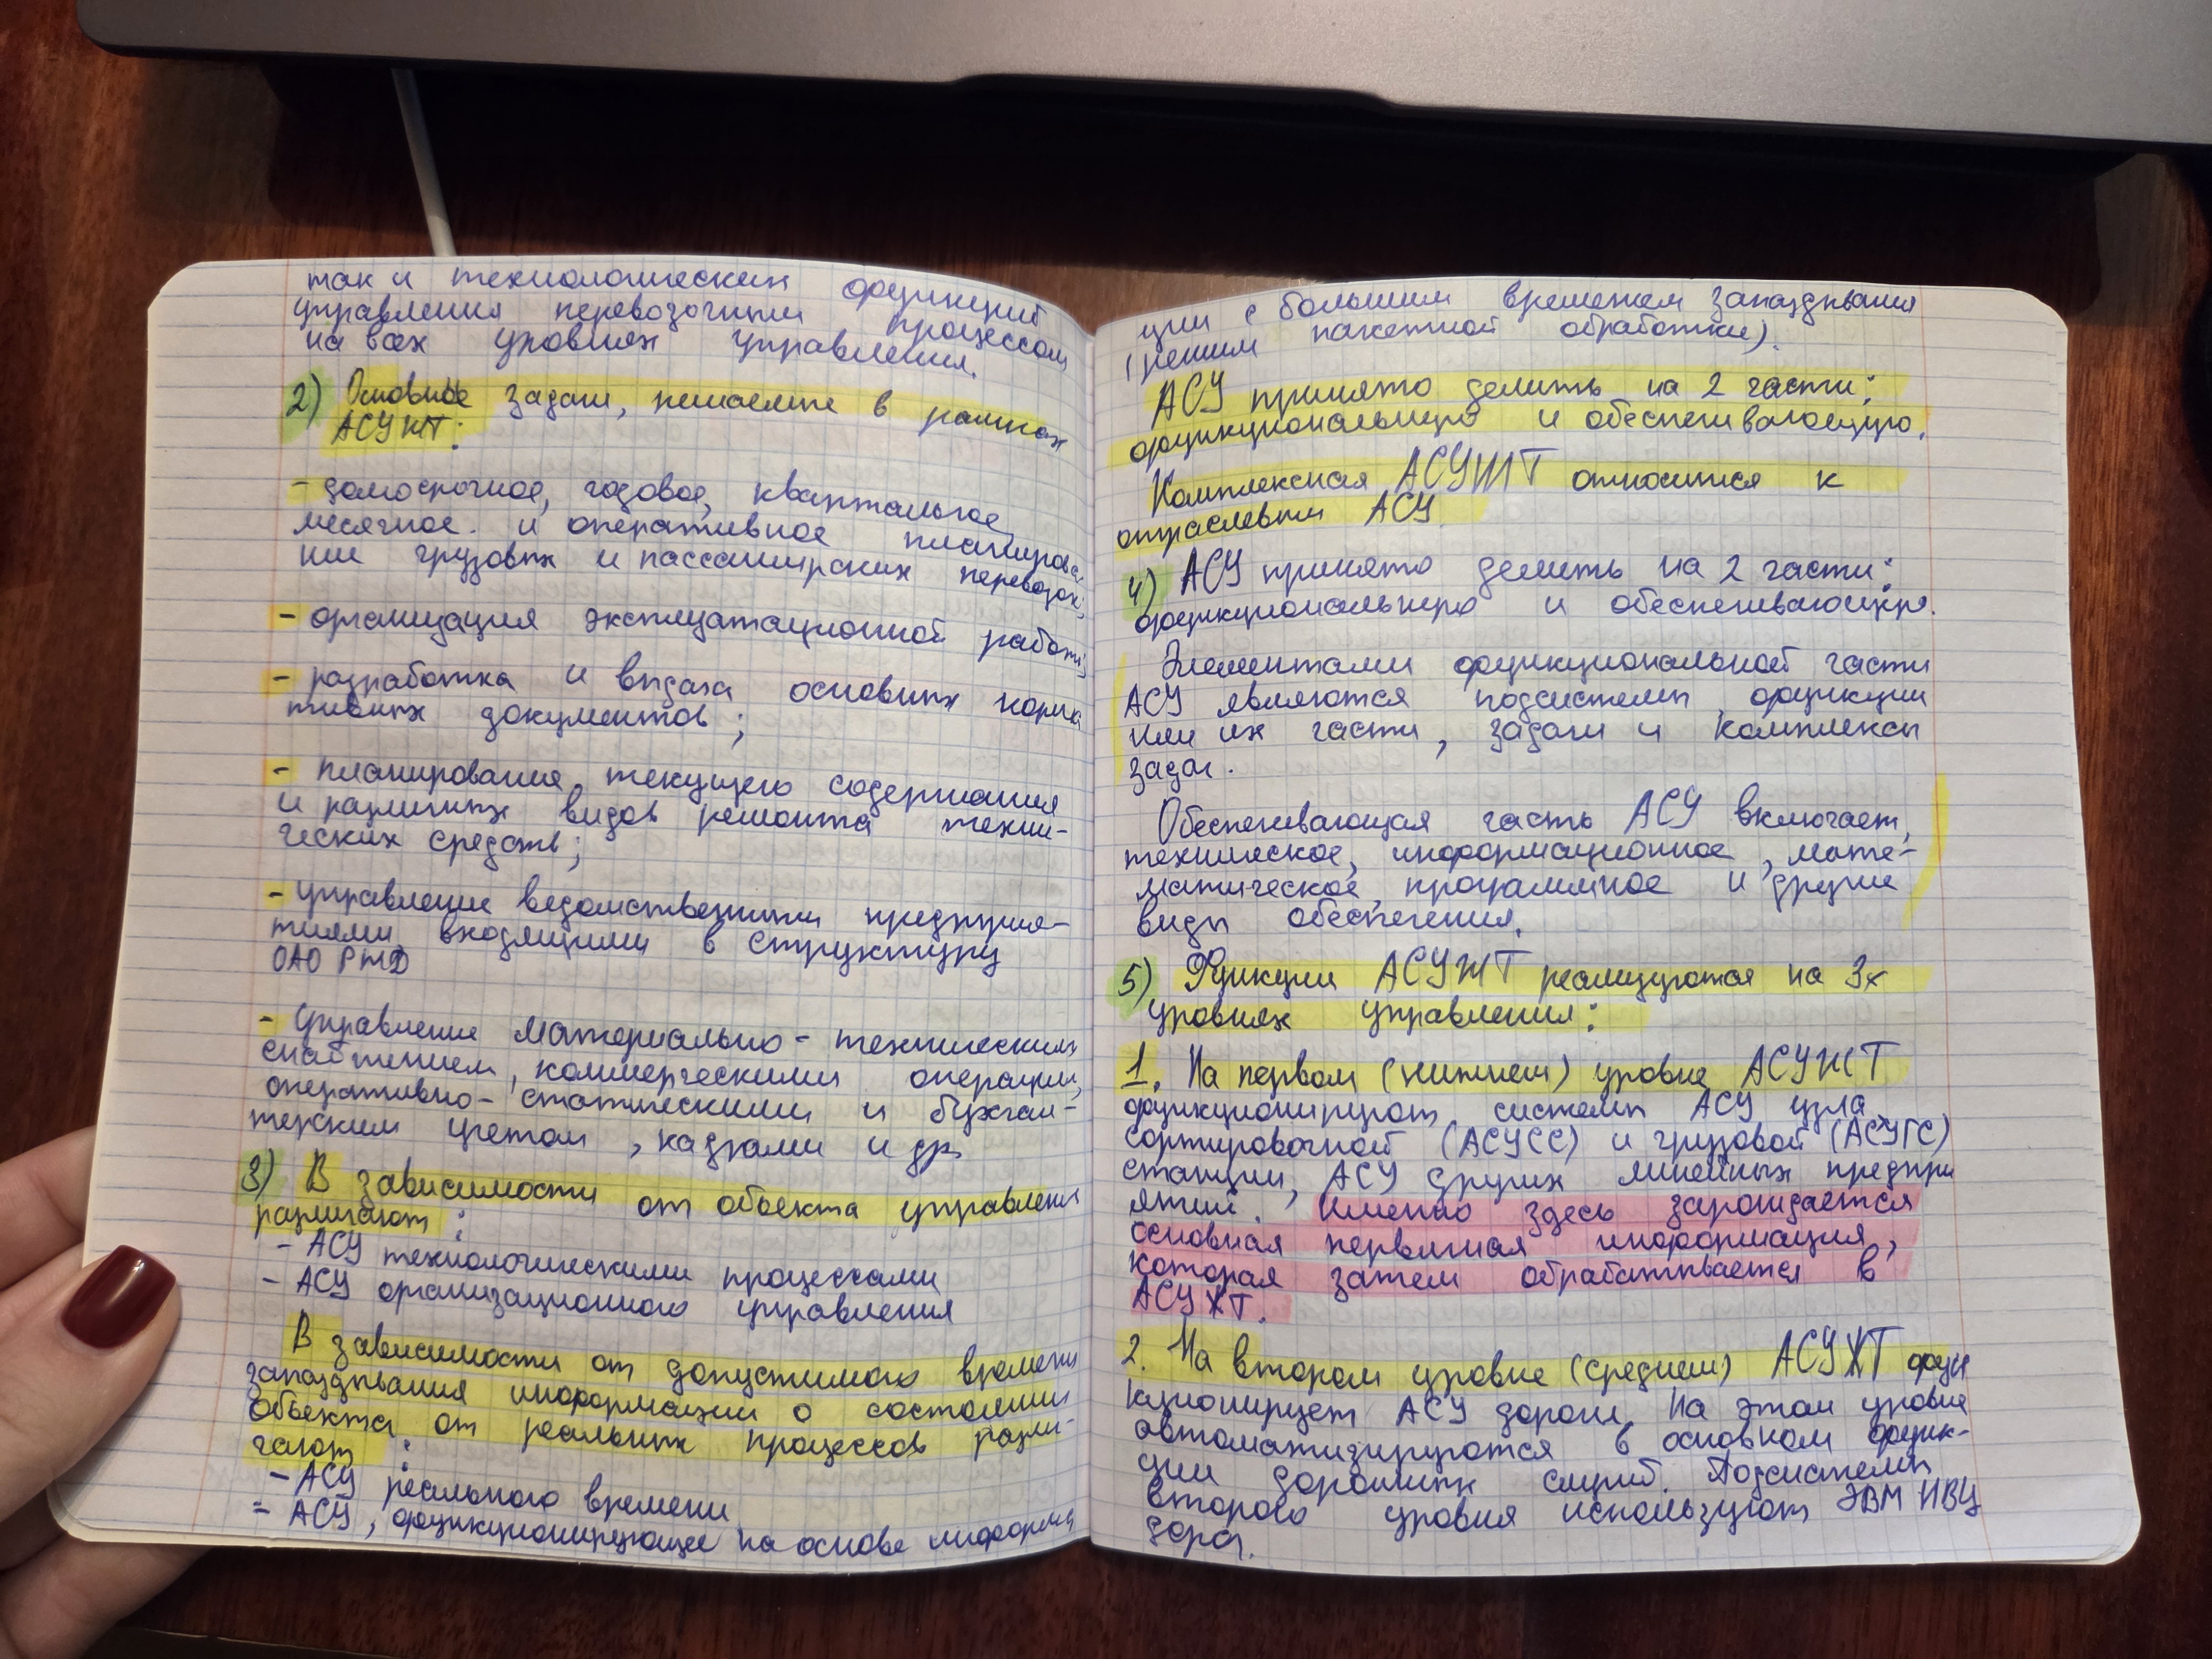 так и технологических функций
управления перевозочным процессом
на всех уровнях управления.
2) Основные задачи, решаемые в рамках
АСУЖТ:
- долгосрочное, годовое, квартальное,
месячное и оперативное планирова-
ние грузовых и пассажирских перевозок;
- организация эксплуатационной работы;
- разработка и выдача основных норма
тивных документов;
- планирование текущего содержания
и различных видов ремонта техни-
ческих средств;
- управление ведомственными предприя-
тиями входящими в структуру
ОАО РЖД
- Управление материально-техническим
снабжением, коммерческими операции,
оперативно-статическими и бухгал-
терским учетом, кадрами и др.
3) В зависимости от объекта управления
различают:
- АСУ технологическими процессами
- АСУ организационного управления
В зависимости от допустимого времени
запаздывания информации о состоянии
объекта от реальных процессов разли-
чают:
- АСУ реального времени
- АСУ, функционирующее на основе информа
ции с большим временем запаздывания
(режим пакетной обработки).
АСУ принято делить на 2 части:
функциональную и обеспечивающую.
Комплексная АСУЖТ относится к
отраслевым АСУ
4) АСУ принято делить на 2 части:
функциональную и обеспечивающую.
Элементами функциональной части
АСУ являются подсистемы, функции
или их части, задачи и комплексы
задач.
Обеспечивающая часть АСУ включает,
техническое, информационное, мате-
матическое, программное и другие
виды обеспечения.
5) Функции АСУЖТ реализуются на 3х
уровнях управления:
1. На первом (нижнем) уровне АСУЖТ
функционируют системы АСУ узла,
сортировочной (АСУСС) и грузовой (АСУГС)
станции, АСУ других линейных предпри
ятий. Именно здесь зарождается
основная первичная информация,
которая затем обрабатывается в
АСУЖТ.
2. На втором уровне (среднем) АСУЖТ функ
кционирует АСУ дороги. На этом уровне
автоматизируются в основном функ-
ции дорожных служб. Подсистемы
второго уровня используют ЭВМ ИВЦ
дорог.